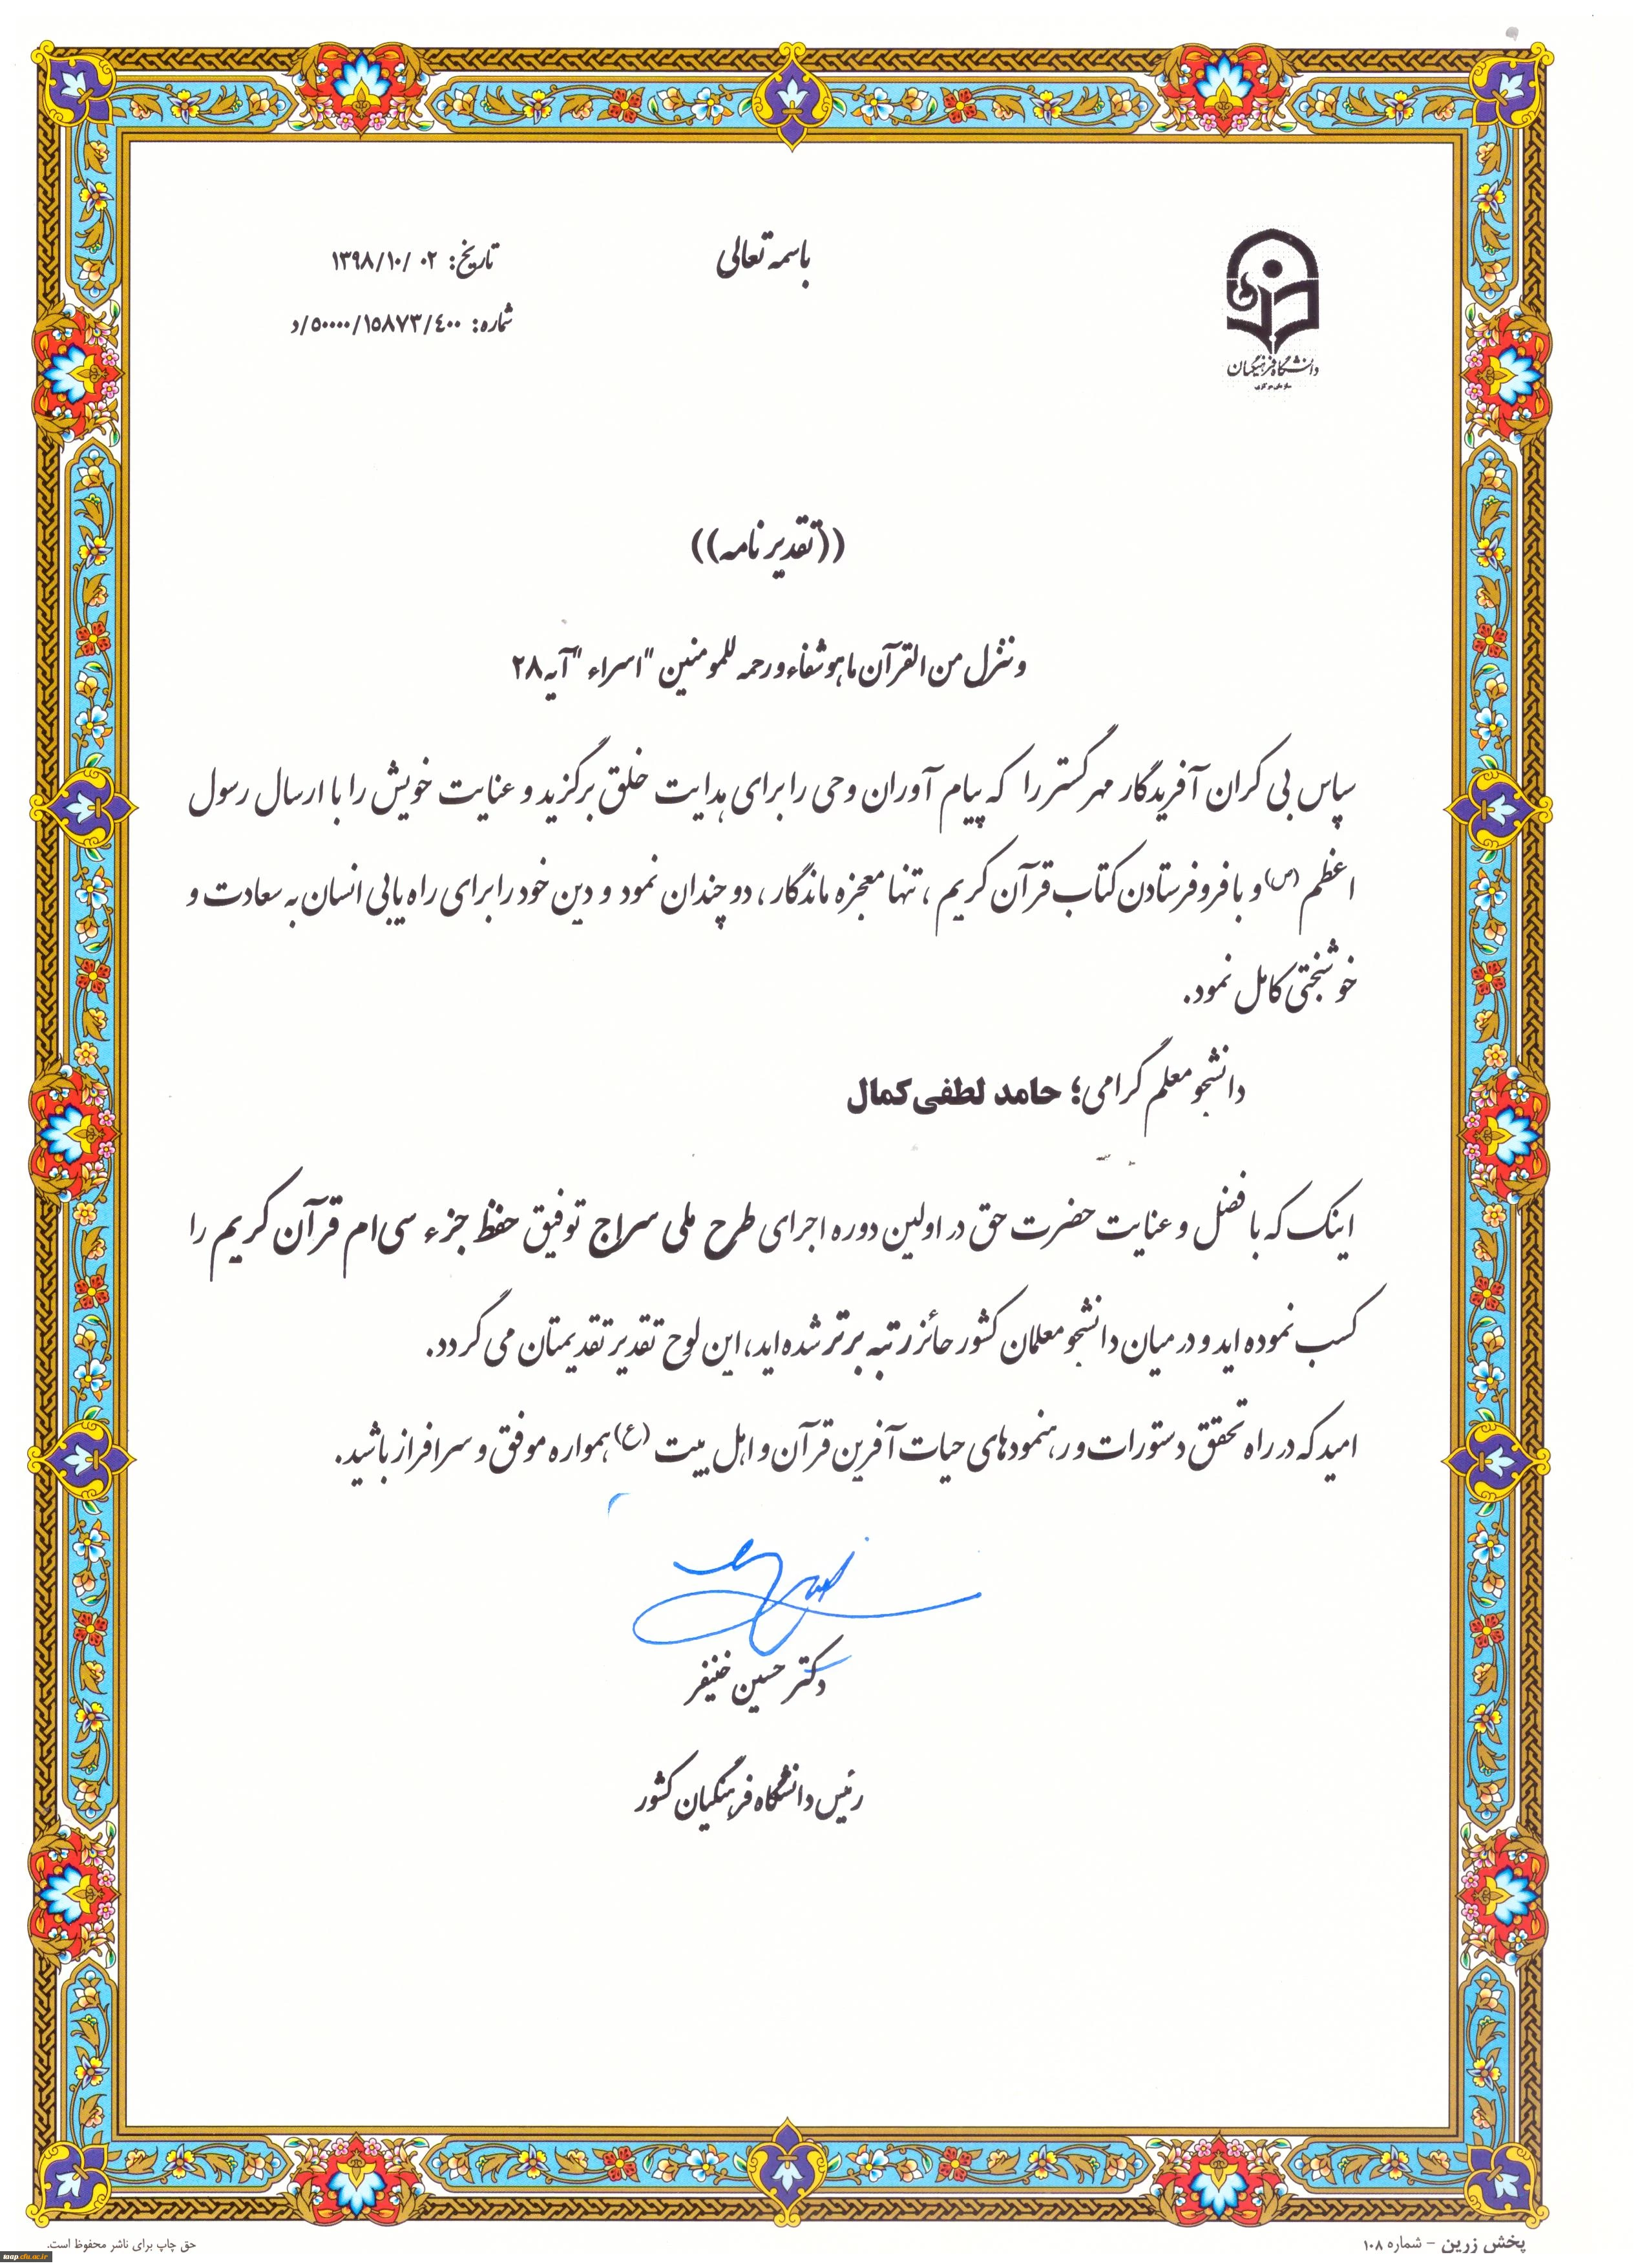 باسمه تعالی
تاریخ: ۱۳۹۸/۱۰/۰۲
شماره: ۵۰۰۰۰/۱۵۸۷۳/۴۰۰/د
دانشگاه فرهنگیان
سازمان مرکزی
((تقدیر نامه))
و ننزل من القرآن ما هو شفاء و رحمه للمومنین "اسراء" آیه ۲۸
سپاس بی کران آفریدگار مهر گستر را که پیام آوران وحی را برای هدایت خلق برگزید و عنایت خویش را با ارسال رسول
اعظم (س) و با فرو فرستادن کتاب قرآن کریم ، تنها معجزه ماندگار ، دو چندان نمود و دین خود را برای راه یابی انسان به سعادت و
خوشبختی کامل نمود.
دانشجو معلم گرامی؛ حامد لطفی کمال
اینک که با فضل و عنایت حضرت حق در اولین دوره اجرای طرح ملی سراج توفیق حفظ جزء سی ام قرآن کریم را
کسب نموده اید و در میان دانشجو معلمان کشور حائز رتبه برتر شده اید، این لوح تقدیر تقدیمتان می گردد.
امید که در راه تحقق دستورات و رهنمودهای حیات آفرین قرآن و اهل بیت (ع) همواره موفق و سرافراز باشید.
دکتر حسین خنیفر
رئیس دانشگاه فرهنگیان کشور
پخش زرین - شماره ۱۰۸
حق چاپ برای ناشر محفوظ است.